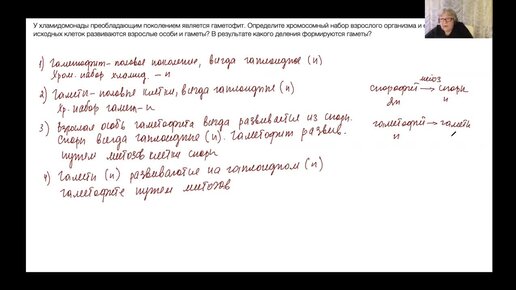 У хламидомонады преобладающим поколением является гаметофит. Определите хромосомный набор взрослого организма и
исходных клеток развиваются взрослые особи и гаметы? В результате какого деления формируются гаметы?
1) Гаметофит - половое поколение, всегда гаплоидное (n)
Хром. набор хламид. - n
2) Гаметы - половые клетки, всегда гаплоидные (n)
Хр. набор гамет - n
3) Взрослая особь гаметофита всегда развивается из спор.
Споры всегда гаплоидные (n). Гаметофит развив.
путем митозов клетки споры
4) Гаметы (n) развиваются на гаплоидном (n)
гаметофите путем митозов
мейоз
спорофит → споры
2n n
гаметофит → гаметы
n